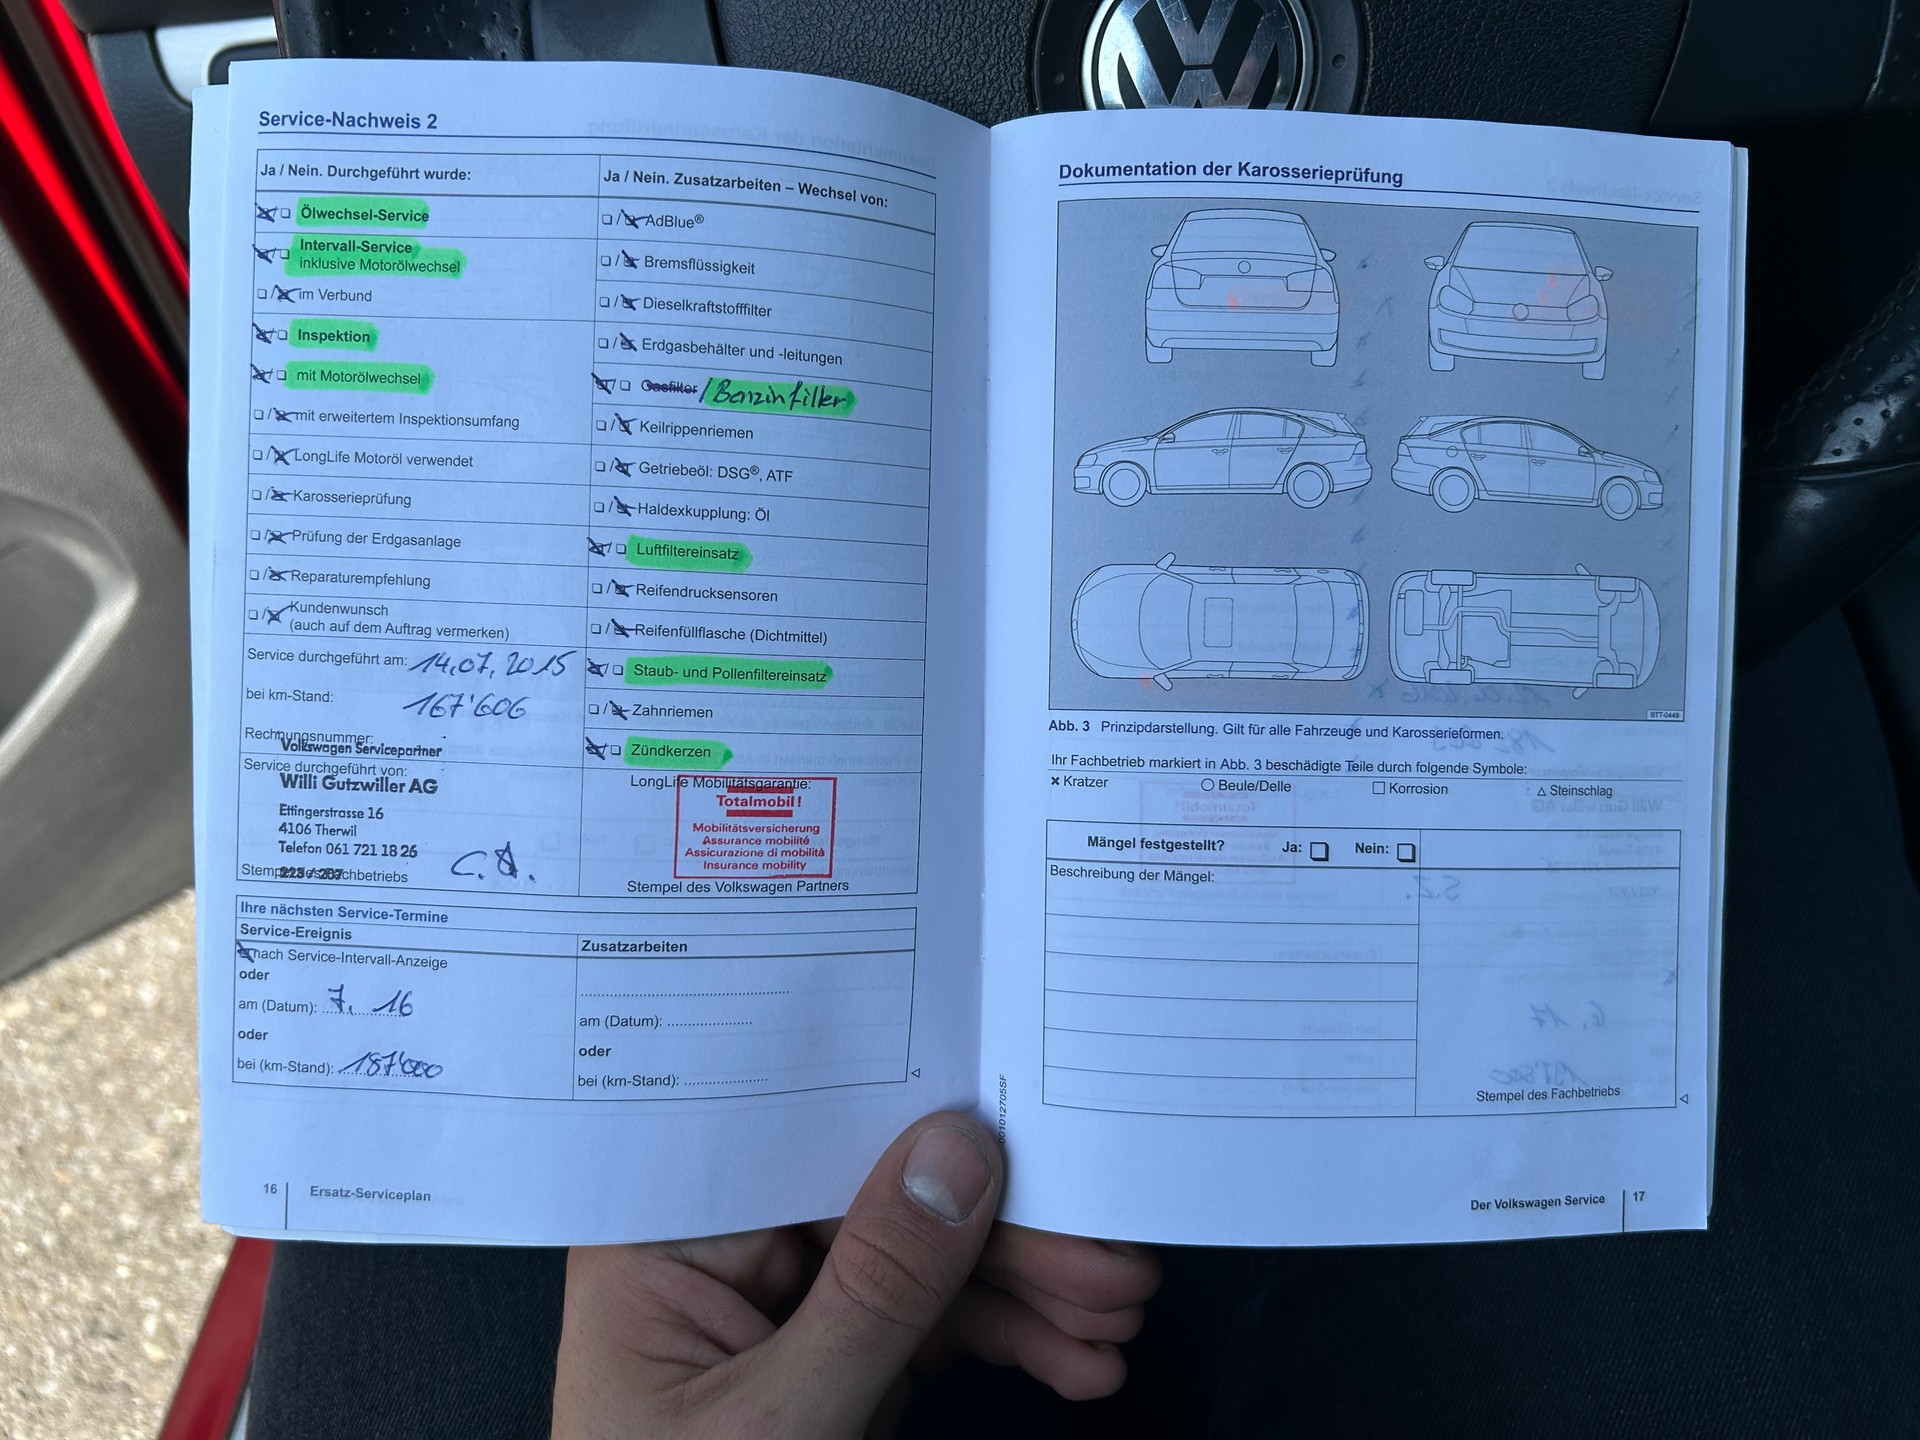 Service-Nachweis 2
Ja / Nein. Durchgeführt wurde:
Ölwechsel-Service
Intervall-Service
inklusive Motorölwechsel
im Verbund
Inspektion
mit Motorölwechsel
mit erweitertem Inspektionsumfang
LongLife Motoröl verwendet
Karosserieprüfung
Prüfung der Erdgasanlage
Reparaturempfehlung
Kundenwunsch
(auch auf dem Auftrag vermerken)
Service durchgeführt am: 14.07.2015
bei km-Stand: 167'606
Rechnungsnummer:
Volkswagen Servicepartner
Service durchgeführt von:
Willi Gutzwiller AG
Ettingerstrasse 16
4106 Therwil
Telefon 061 721 18 26
223 / 207
Stempel des Fachbetriebs
Ja / Nein. Zusatzarbeiten – Wechsel von:
AdBlue®
Bremsflüssigkeit
Dieselkraftstofffilter
Erdgasbehälter und -leitungen
Gasfilter / Benzinfilter
Keilrippenriemen
Getriebeöl: DSG®, ATF
Haldexkupplung: Öl
Luftfiltereinsatz
Reifendrucksensoren
Reifenfüllflasche (Dichtmittel)
Staub- und Pollenfiltereinsatz
Zahnriemen
Zündkerzen
LongLife Mobilitätsgarantie:
Totalmobil!
Mobilitätsversicherung
Assurance mobilité
Assicurazione di mobilità
Insurance mobility
Stempel des Volkswagen Partners
Ihre nächsten Service-Termine
Service-Ereignis
nach Service-Intervall-Anzeige
oder
am (Datum): 7. 16
oder
bei (km-Stand): 187'000
Zusatzarbeiten
am (Datum):
oder
bei (km-Stand):
16
Ersatz-Serviceplan
Dokumentation der Karosserieprüfung
BTT-0449
Abb. 3 Prinzipdarstellung. Gilt für alle Fahrzeuge und Karosserieformen.
Ihr Fachbetrieb markiert in Abb. 3 beschädigte Teile durch folgende Symbole:
Kratzer
Beule/Delle
Korrosion
Steinschlag
Mängel festgestellt? Ja: Nein:
Beschreibung der Mängel:
Stempel des Fachbetriebs
001012705SF
Der Volkswagen Service
17